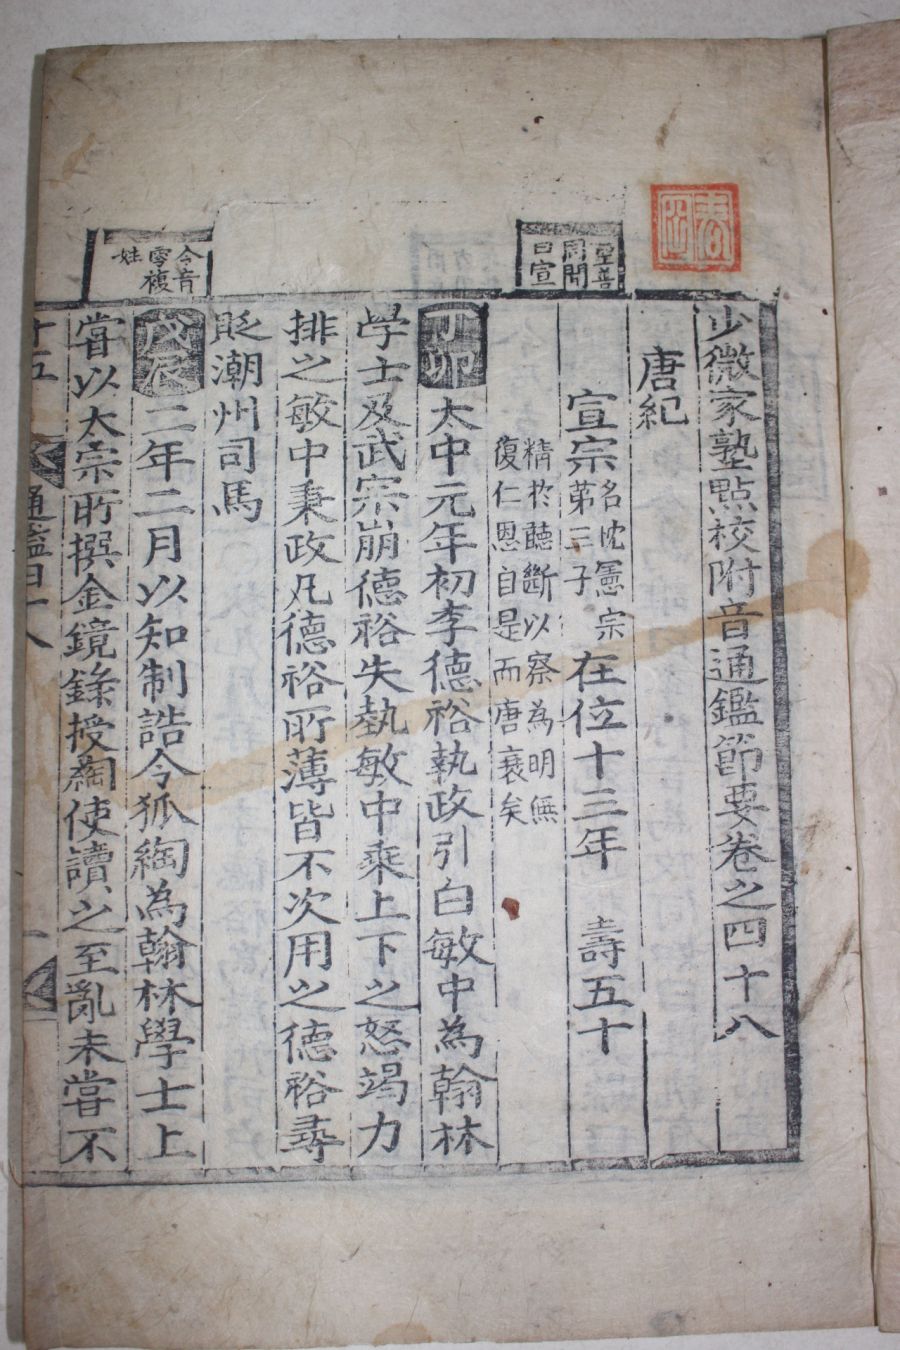 少微家塾點校附音通鑑節要卷之四十八
唐紀
聖善
周聞
曰宣
宣宗
名忱憲宗
第三子
在位十三年 壽五十
精於聽斷以察為明無
復仁恩自是而唐衰矣
丁卯太中元年初李德裕執政引白敏中為翰林
學士及武宗崩德裕失執敏中乘上下之怒竭力
排之敏中秉政凡德裕所薄皆不次用之德裕尋
貶潮州司馬
令音
零複
姓
戊辰二年二月以知制誥令狐綯為翰林學士上
嘗以太宗所撰金鏡錄授綯使讀之至亂未嘗不
十五
通鑑四十八
一